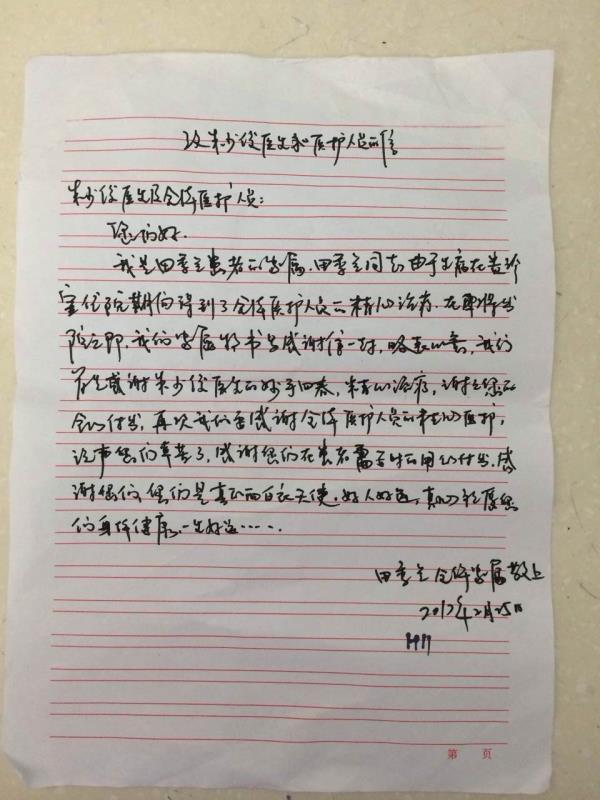 致朱少俊医生和医护人员的信
朱少俊医生及全体医护人员：
您们好。
我是田季兰患者的家属，田季兰同志由于生病在贵珍
室住院期间得到了全体医护人员的精心治疗。在即将出
院之即，我们家属特书写感谢信一封，略表心意，我们
首先感谢朱少俊医生的妙手回春，精心治疗，谢谢您的
全心付出，再次我们要感谢全体医护人员的精心医护，
说声您们辛苦了，感谢您们在患者需要时的用心付出，感
谢您们，您们是真正的白衣天使。好人好运，真心祝愿您
们身体健康一生好运……
田季兰全体家属敬上
2017年2月25日